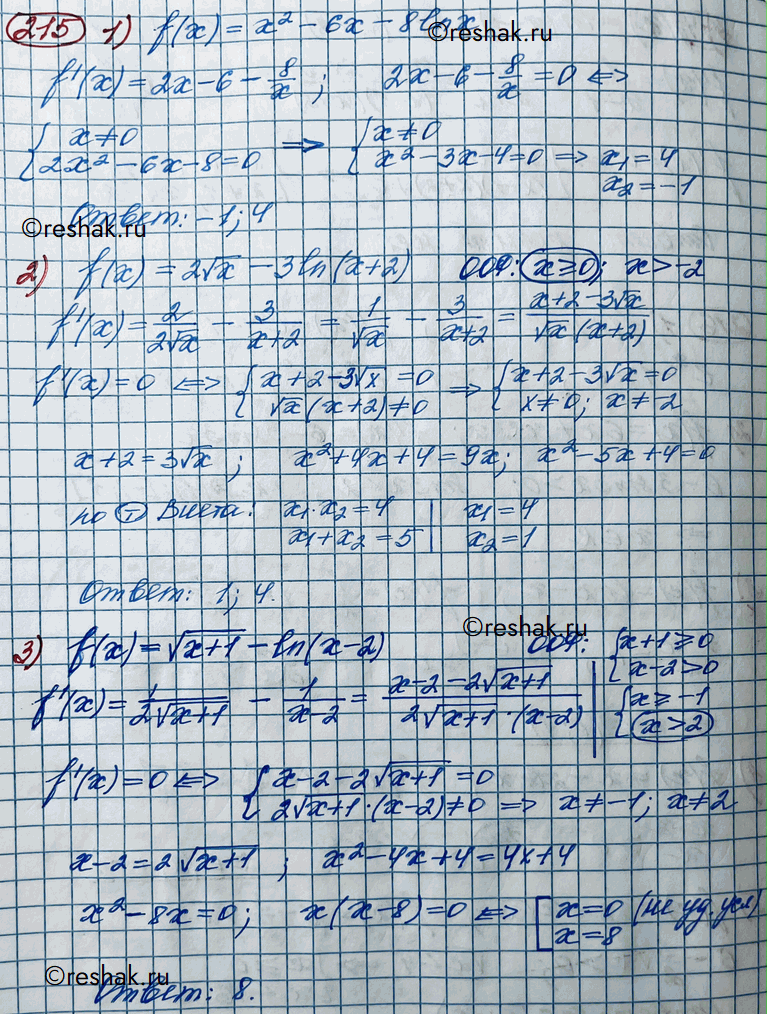 215 1) f(x) = x² - 6x - 8lnx
©reshak.ru
f'(x) = 2x - 6 - 8/x ; 2x - 6 - 8/x = 0 ⇔
{ x ≠ 0 ⇒ { x ≠ 0
2x² - 6x - 8 = 0 x² - 3x - 4 = 0 ⇒ x₁ = 4
x₂ = -1
Ответ: -1; 4
©reshak.ru
2) f(x) = 2√x - 3ln(x+2) ООФ: x ≥ 0; x > -2
f'(x) = 2/(2√x) - 3/(x+2) = 1/√x - 3/(x+2) = (x+2-3√x)/(√x(x+2))
f'(x) = 0 ⇔ { x+2-3√x = 0 ⇒ { x+2-3√x = 0
√x(x+2) ≠ 0 x ≠ 0; x ≠ -2
x+2 = 3√x ; x²+4x+4 = 9x; x²-5x+4 = 0
по Т Виета: x₁·x₂ = 4 | x₁ = 4
x₁+x₂ = 5 | x₂ = 1
Ответ: 1; 4.
©reshak.ru
3) f(x) = √(x+1) - ln(x-2) ООФ: { x+1 ≥ 0
x-2 > 0
f'(x) = 1/(2√(x+1)) - 1/(x-2) = (x-2-2√(x+1))/(2√(x+1)·(x-2)) | { x ≥ -1
x > 2
f'(x) = 0 ⇔ { x-2-2√(x+1) = 0
2√(x+1)·(x-2) ≠ 0 ⇒ x ≠ -1; x ≠ 2
x-2 = 2√(x+1) ; x²-4x+4 = 4x+4
x²-8x = 0; x(x-8) = 0 ⇔ [ x = 0 (не уд. усл)
x = 8
©reshak.ru
Ответ: 8.